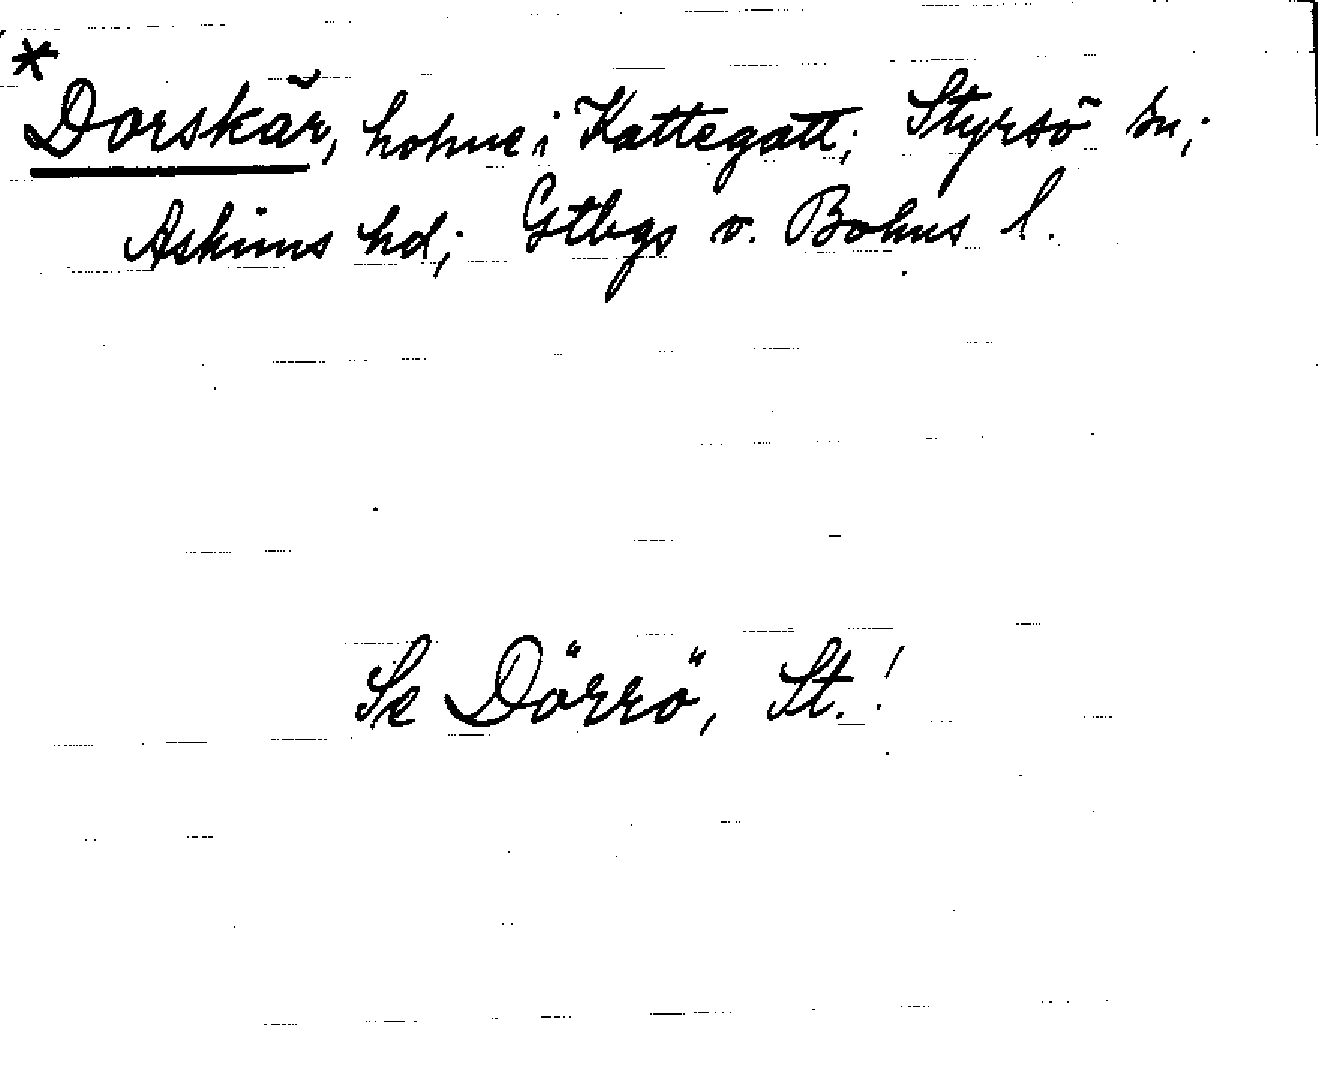 * Dorskär, holme i Kattegatt; Styrsö sn;
Askims hd; Gtbgs o. Bohus l.
Se Dörrö, St.!